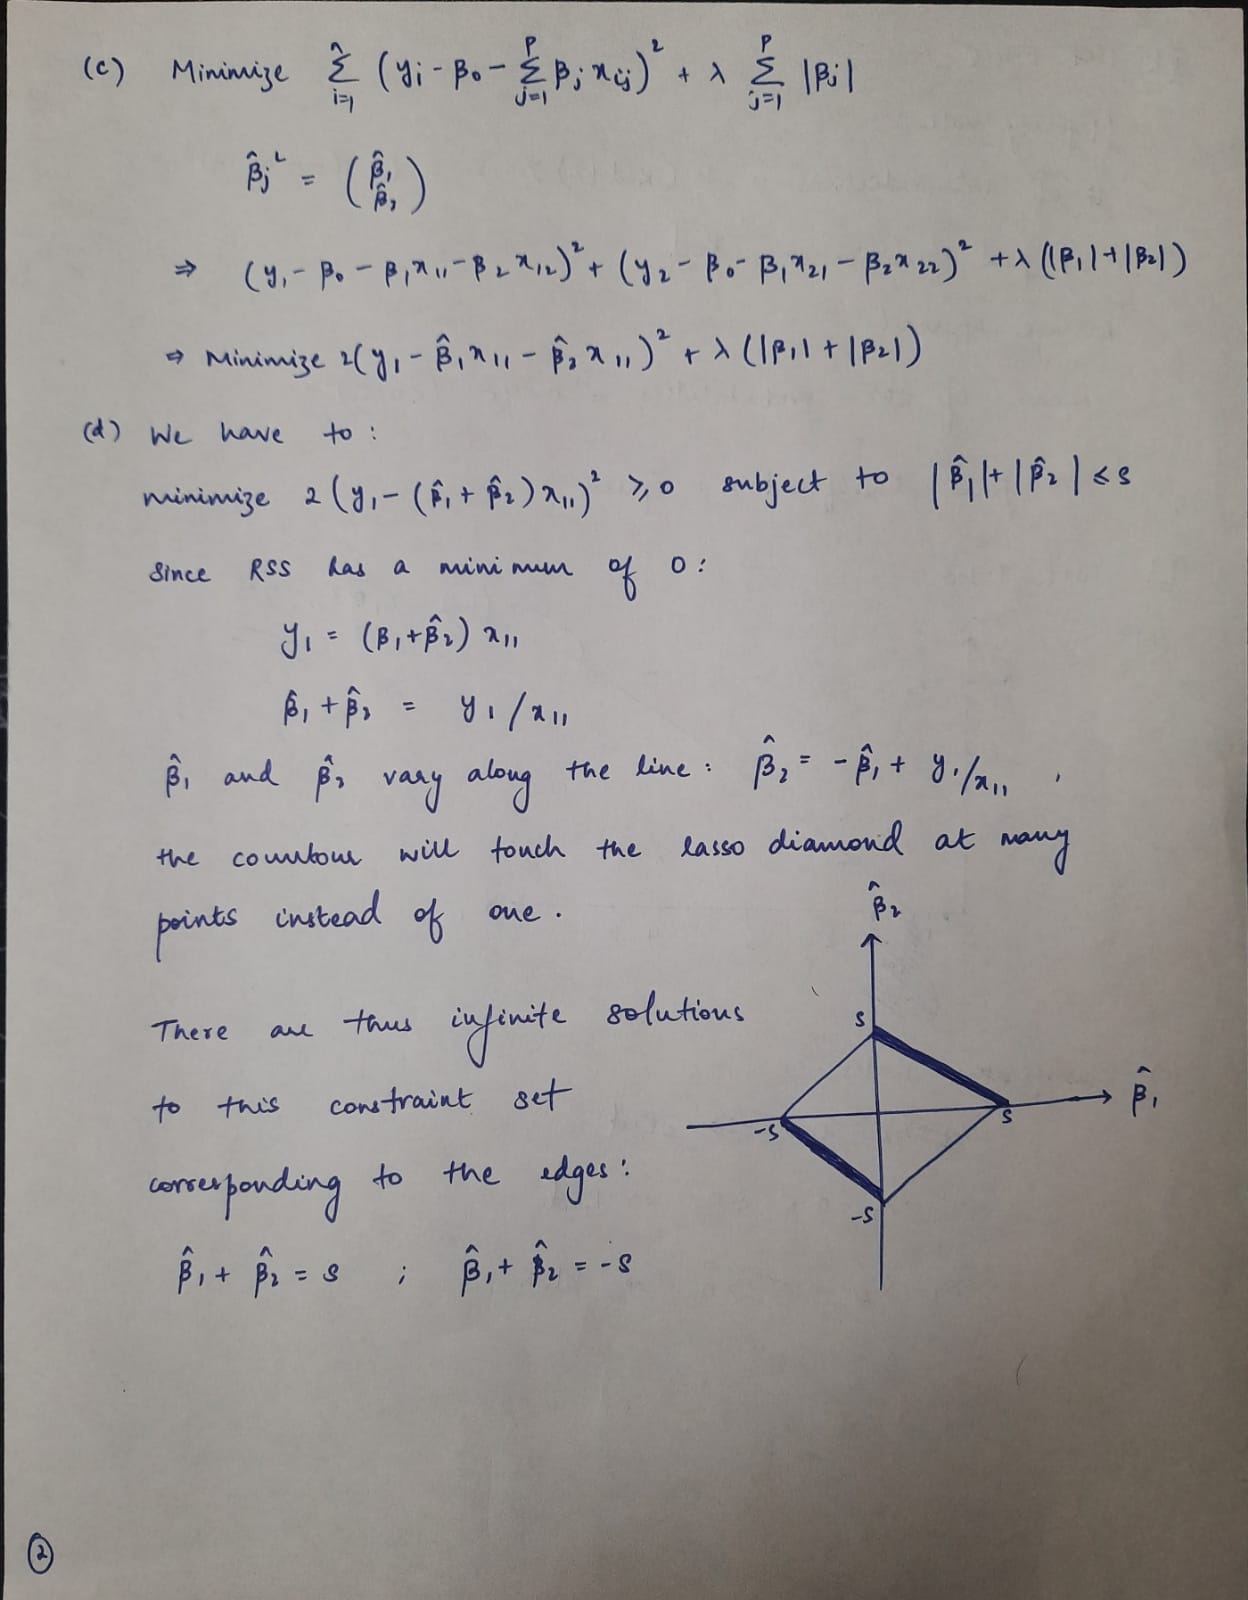 (c) Minimize n Σ i=1 (yi - β0 - p Σ j=1 βj xij)² + λ p Σ j=1 |βj|
β̂j^L = (β̂1 β̂2)
⇒ (y1 - β0 - β1x11 - β2x12)² + (y2 - β0 - β1x21 - β2x22)² + λ(|β1| + |β2|)
⇒ Minimize 2(y1 - β̂1x11 - β̂2x11)² + λ(|β1| + |β2|)
(d) We have to :
minimize 2(y1 - (β̂1 + β̂2)x11)² ≥ 0 subject to |β̂1| + |β̂2| ≤ s
Since RSS has a minimum of 0 :
y1 = (β1 + β̂2) x11
β̂1 + β̂2 = y1/x11
β̂1 and β̂2 vary along the line : β̂2 = -β̂1 + y1/x11 ,
the countour will touch the lasso diamond at many
points instead of one .
β̂2
There are thus infinite solutions
s
to this constraint set
β̂1
-s s
corresponding to the edges :
-s
β̂1 + β̂2 = s ; β̂1 + β̂2 = -s
2